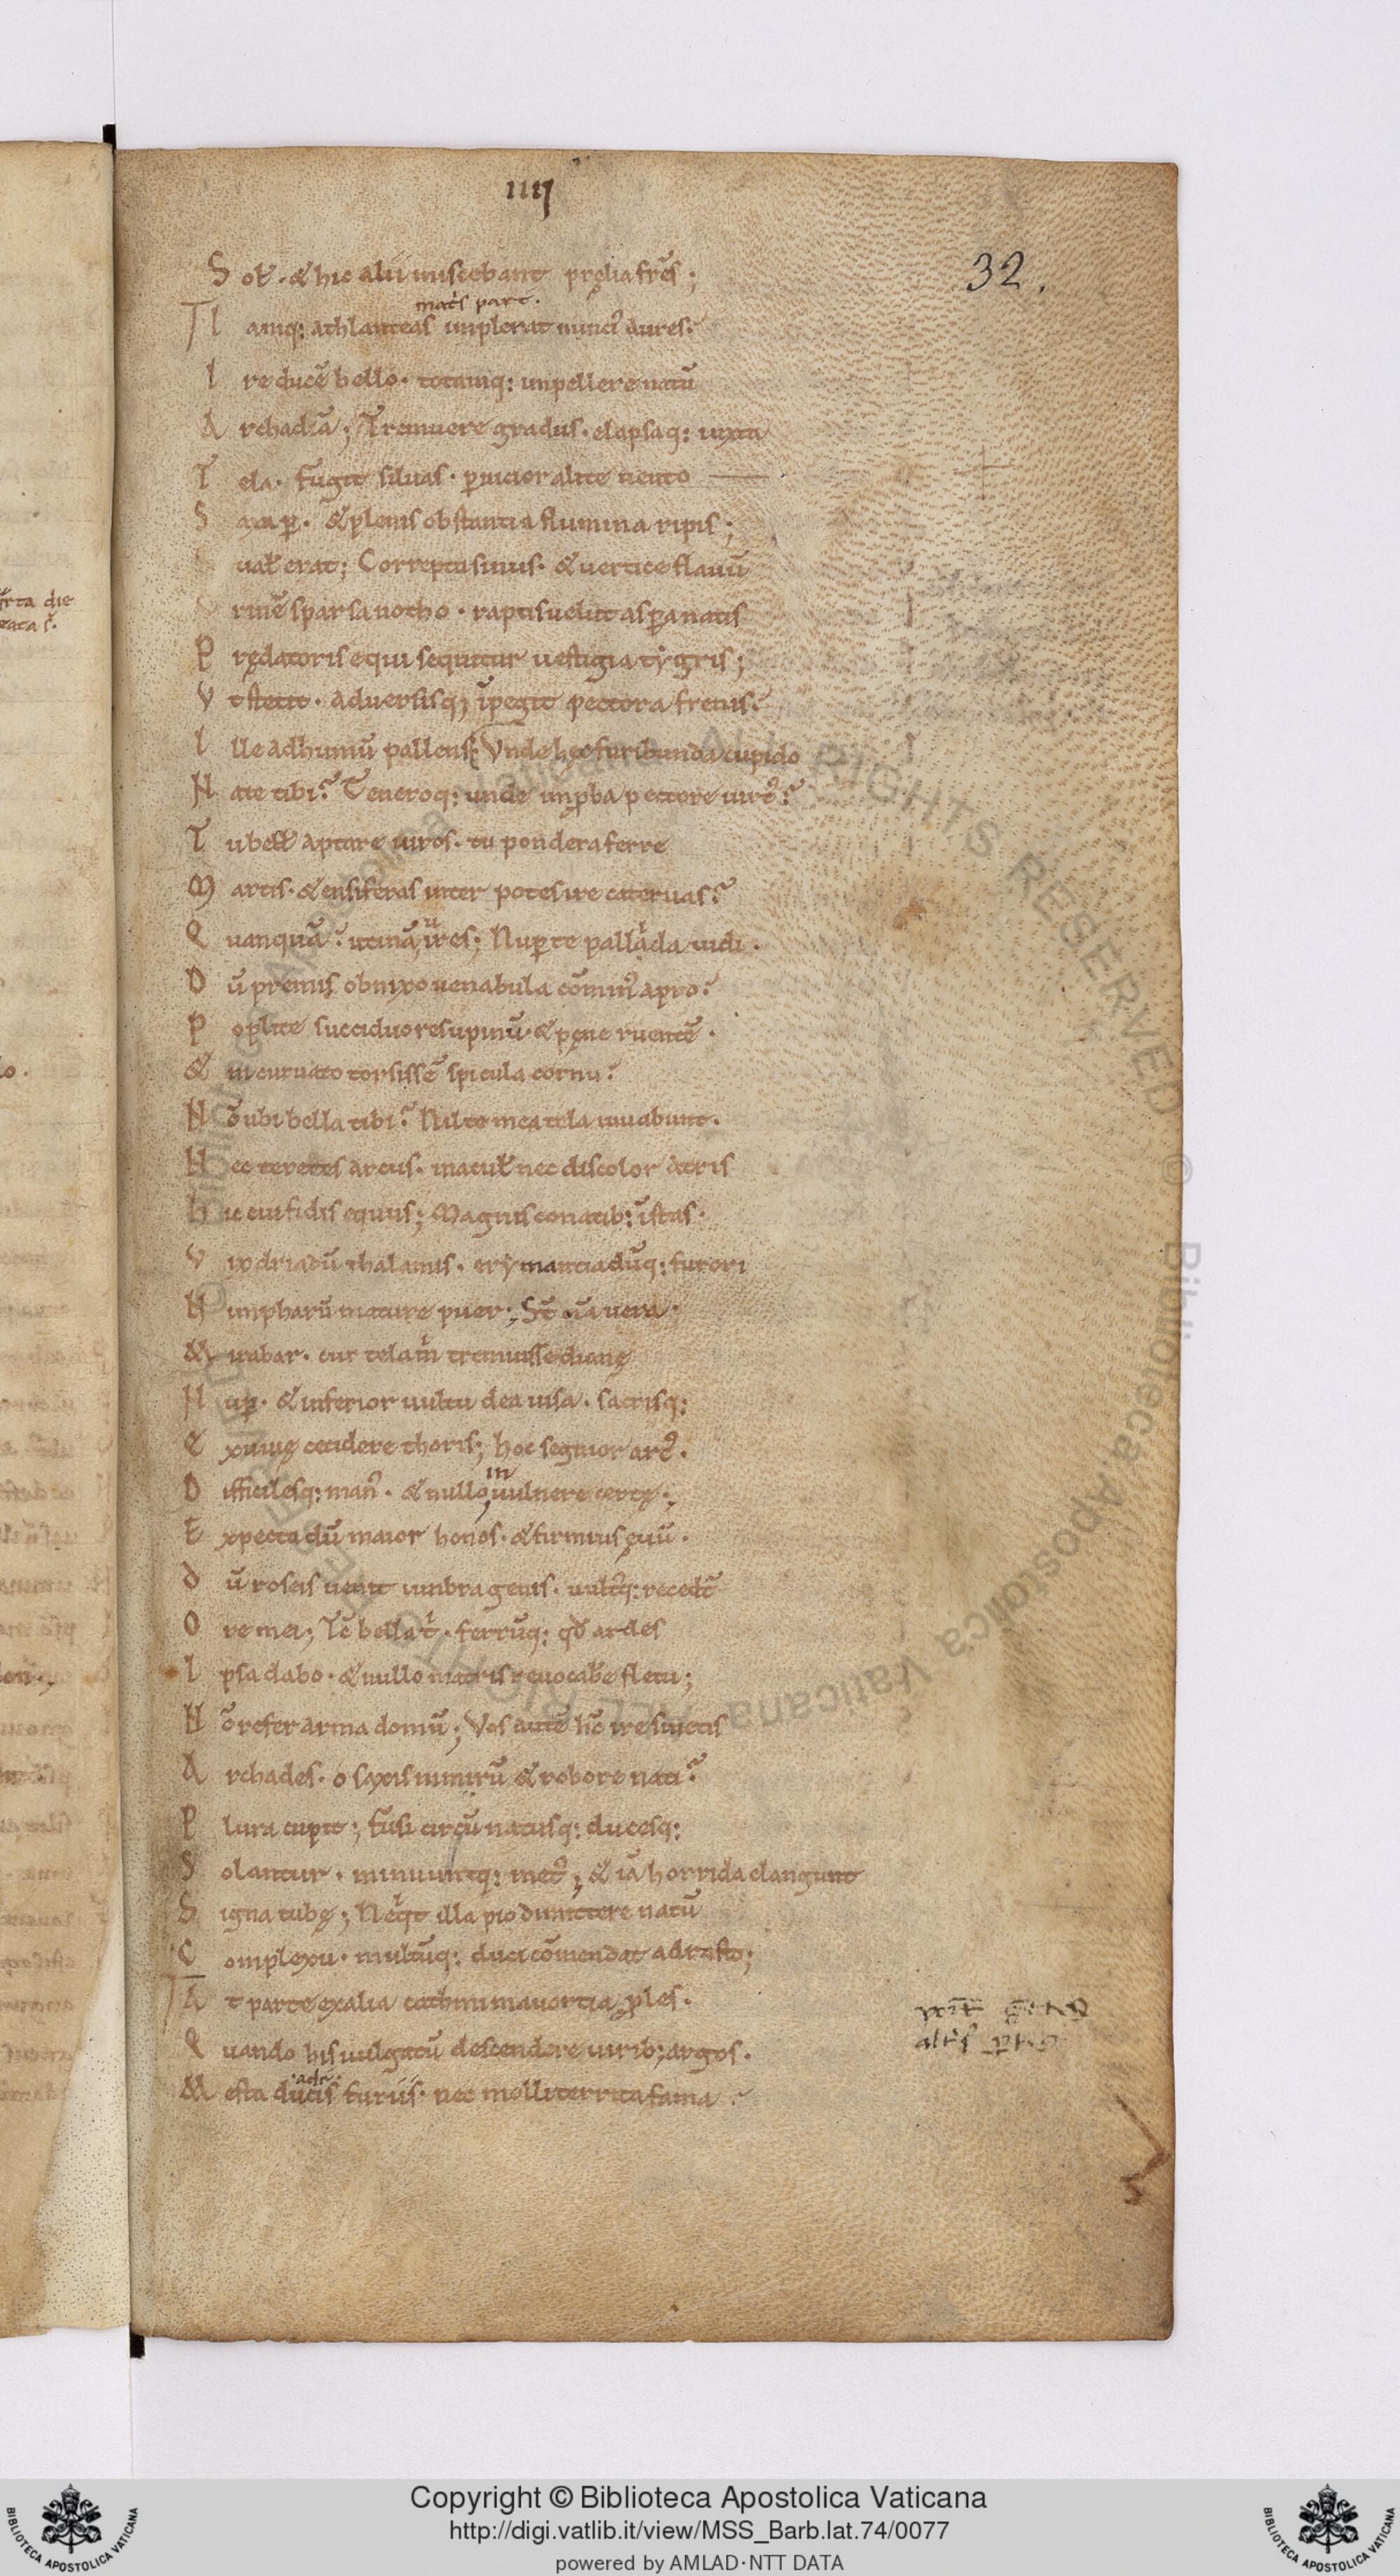 IIII
32.
Sol̄. & hic alii miscebant pręlia frēs;
mat̓s part.
Iamq: athlanteas implerat nunci᾽ aures.
Ire ducē bello. totamq: impellere natū
Archadiā; Tremuere gradus. elapsaq: iuxta
Tela. fugit siluas. ꝑnicior alite uento
Saxa ꝑ. & plenis obstantia flumina ripis;
ualꝭ erat; Correpta sinus. & uertice flauū
rinē sparsa notho. raptis uelut asꝑa natis
Prędatoris equi sequitur uestigia tẏgris;
Vt stetit. aduersisq; īpegit pectora frenis.
Ille ad humū pallens; Vnde hęc furibunda cupido
Nate tibi? Teneroq: unde inꝓba pectore uirt᾽?
Tu bellꝭ aptare uiros. tu pondera ferre
Martis. & ensiferas inter potes ire cateruas?
Quanquā? utinā ires; Nuꝑ te pallida uidi.
Dū premis obnixo uenabula cōmin᾽ apro?
Poplite succiduo resupinū. & pęne ruentē.
& in curuato torsissē spicula cornu?
Nō ubi bella tibi? Nil te mea tela iuuabunt.
Nec teretes arcus. maculꝭ nec discolor atris
hic cui fidis equus; Magnis conatib: īstas.
Vix driadū thalamis. erẏmantiadūq: furori
Nimpharū mature puer; St̄ oīa uera.
Mirabar. cur tēla m̓ tremuisse dianę
Nuꝑ. & inferior uultu dea uisa. sacrisq:
Exuuię cecidere thoris; hoc segnior arc᾽.
Difficilesq: man᾽. & nullo in uulnere certę.;
Expecta dū maior honos. & firmius ęuū.
dū roseis uenit umbra genis. uult᾽q: recedt̄
Ore mei; Tc̄ bella t̓. ferrūq: qđ ardes
Ipsa dabo. & nullo matris reuocabꝭe fletu;
Nō refer arma domū; Vos autē hc̄ ire sinetis
Archades. o saxis nimirū & robore nati?
Plura cupit; fusi circū natusq: ducesq:
Solantur. minuuntq: met᾽; & iā horrida clangunt
Signa tubę; Neq̓t illa pio dimittere natū
Complexu. multūq: duci cōmendat adrasto;
At parte ex alia cathmi mauortia ꝓles.
Quando his uulgatū descendere uirib; argos.
adr.
Mesta ducis furiis. nec molli territa fama?